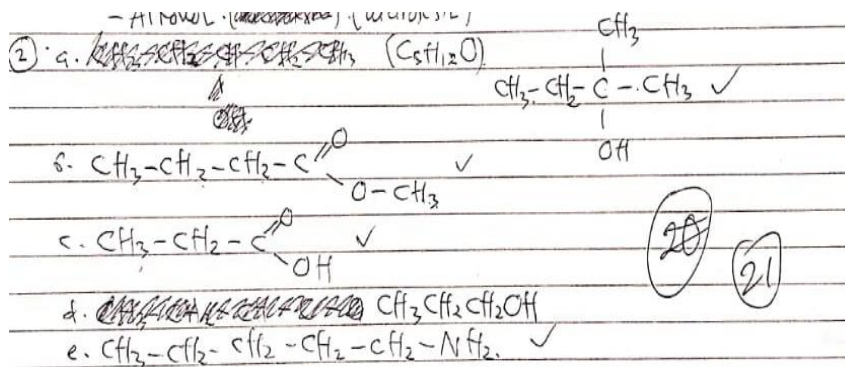 ② a. (C5H12O)
CH3
|
CH3-CH2-C-CH3 ✓
|
OH
b. CH3-CH2-CH2-C=O ✓
O-CH3
c. CH3-CH2-C=O ✓
OH
20
21
d. CH3CH2CH2OH
e. CH3-CH2-CH2-CH2-CH2-NH2. ✓